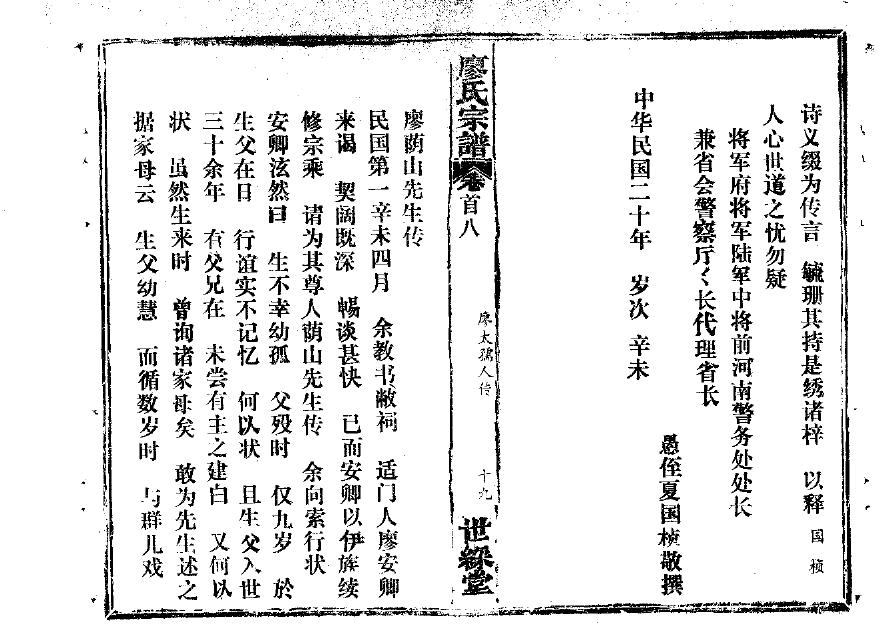 诗义缀为传言 毓珊其持是绣诸梓 以释国桢
人心世道之忧勿疑
将军府将军陆军中将前河南警务处处长
兼省会警察厅〱长代理省长
愚侄夏国桢敬撰
中华民国二十年 岁次 辛未
廖氏宗谱 卷首八
廖太孺人传
十九
世綵堂
廖荫山先生传
民国第一辛未四月 余教书敝祠 适门人廖安卿
来谒 契阔既深 畅谈甚快 已而安卿以伊族续
修宗乘 请为其尊人荫山先生传 余向索行状
安卿泫然曰 生不幸幼孤 父殁时 仅九岁 於
生父在日 行谊实不记忆 何以状 且生父入世
三十余年 有父兄在 未尝有主之建白 又何以
状 虽然生来时 曾询诸家母矣 敢为先生述之
据家母云 生父幼慧 而循数岁时 与群儿戏